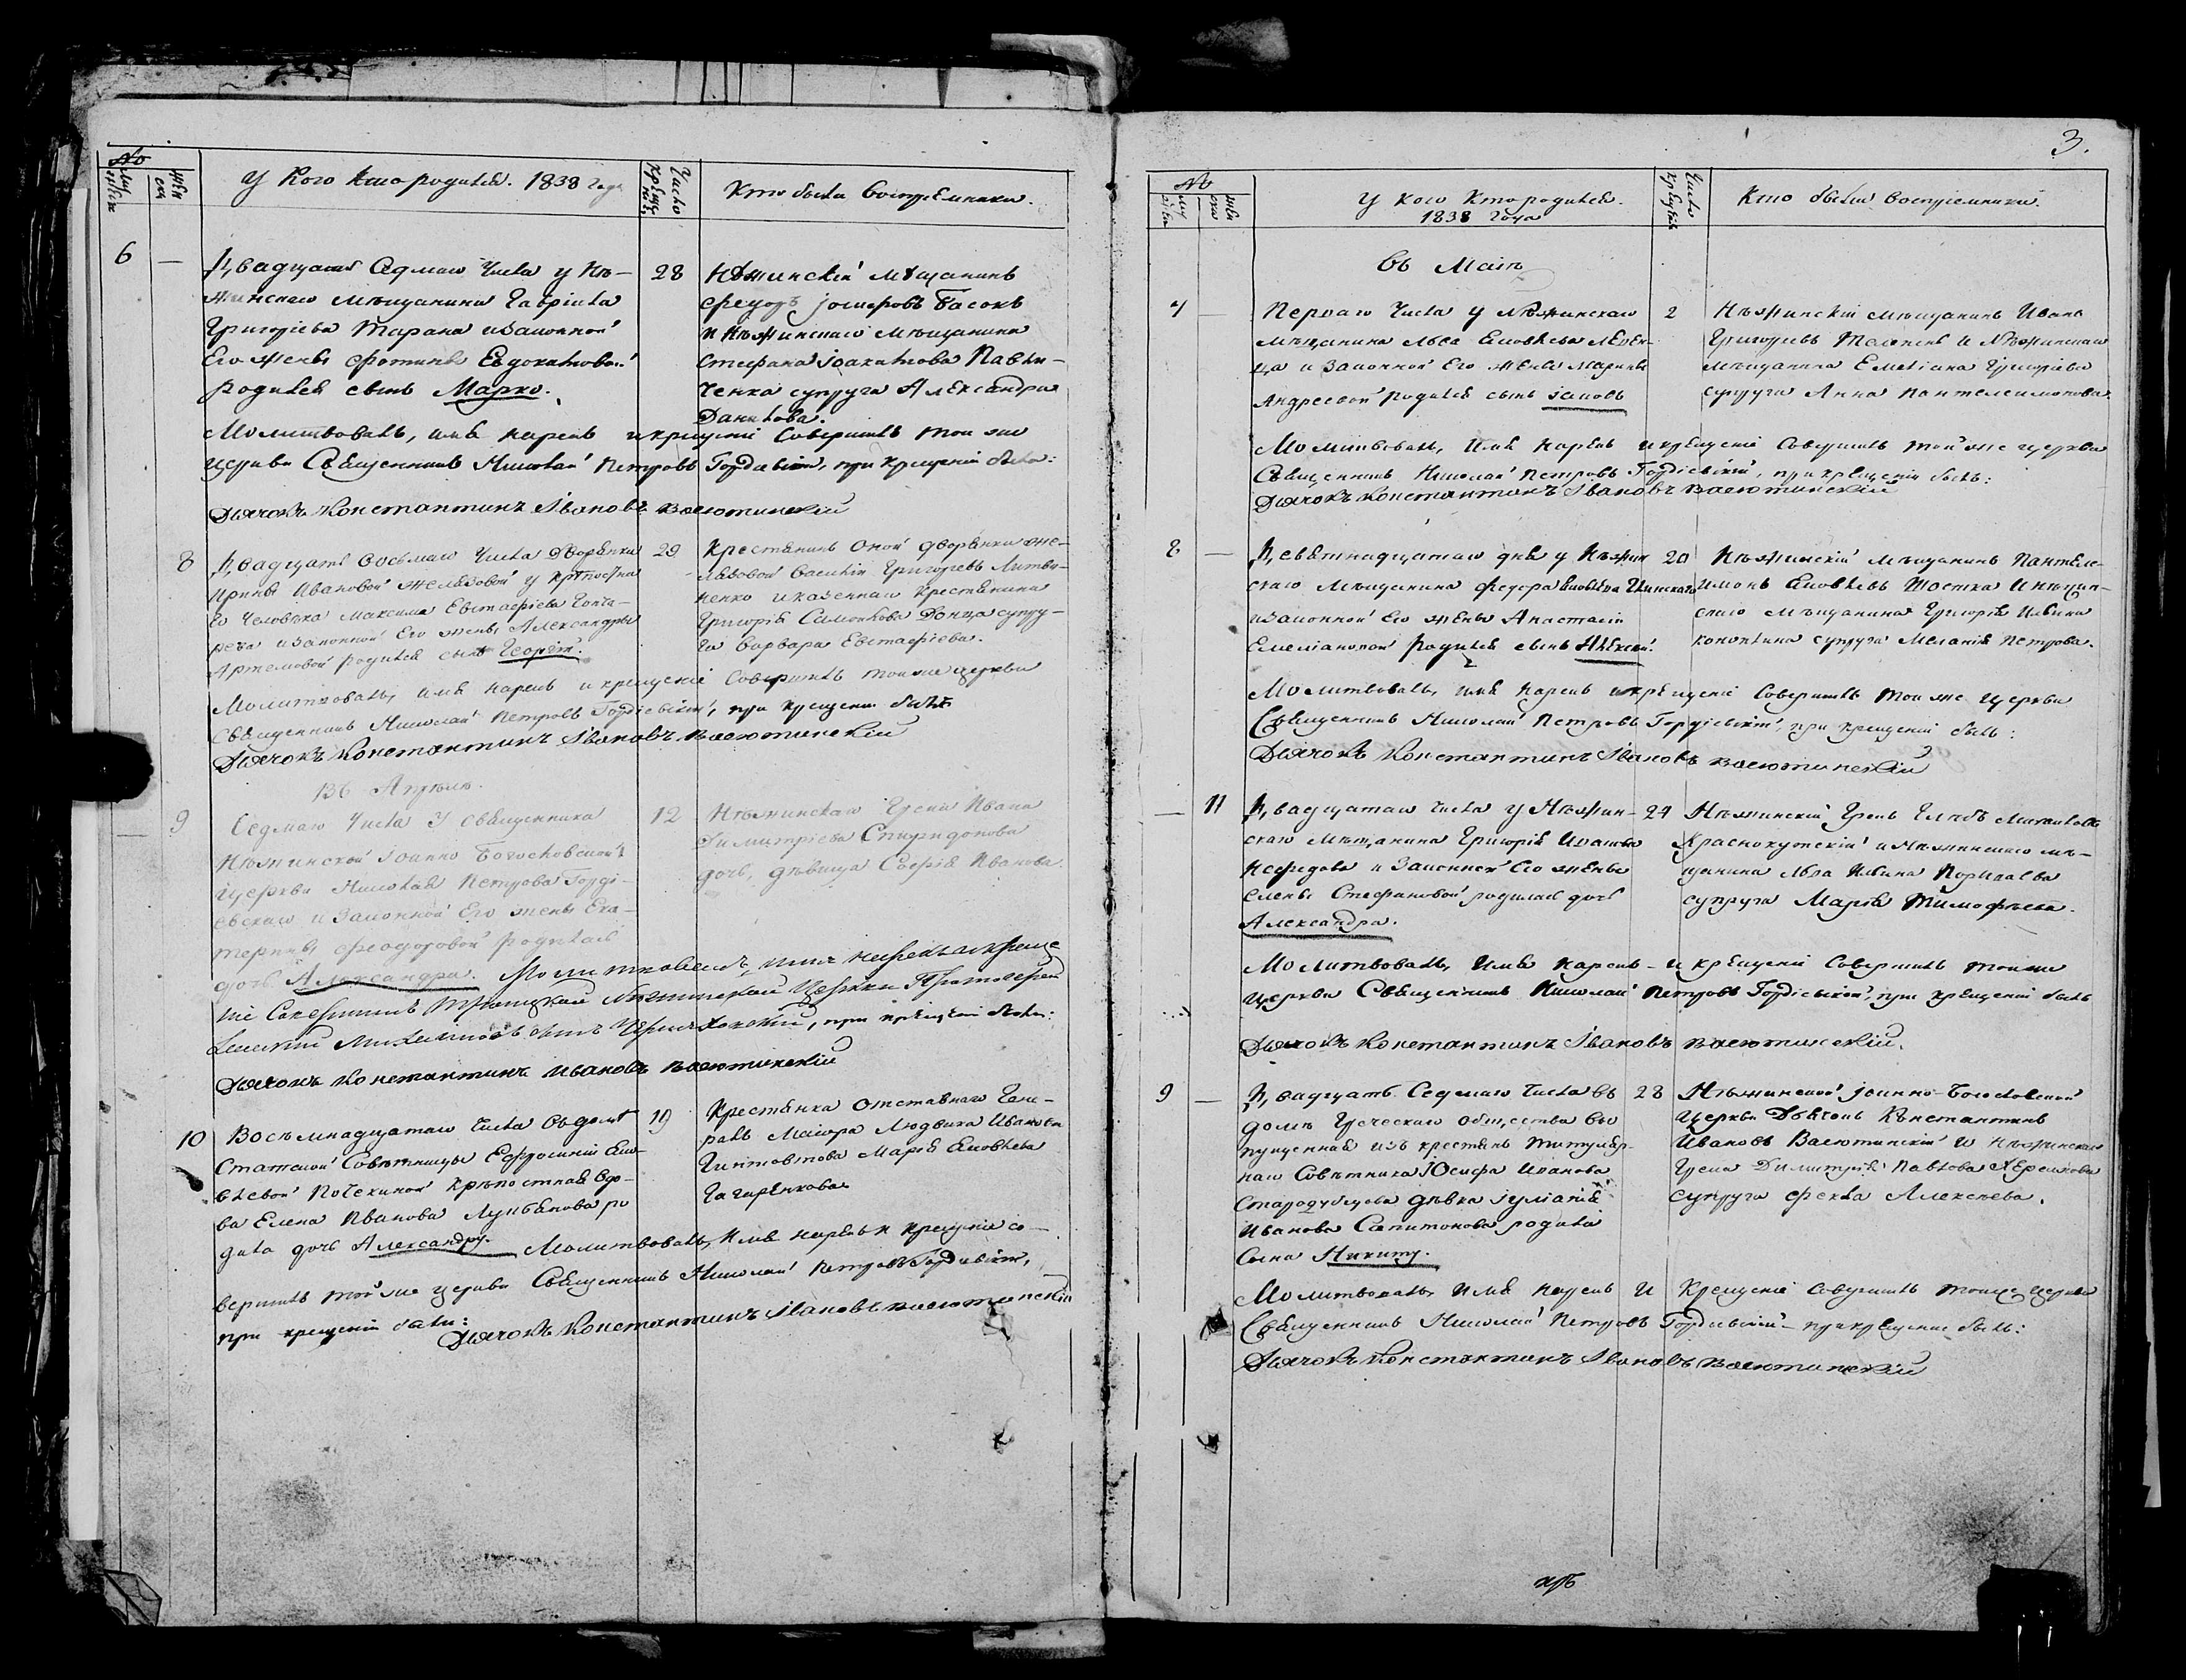 №
муж
жен
У Кого кто родился. 1838 года
Число крещенія
Кто были Восприемники.
6 — Двадцать Седмаго Числа у Нѣ- 28 Нѣжинскій мѣщанинъ
жинскаго мѣщанина Гавріила
Григоріева Тарана и Законной
Его жены Фотины Евдокимовой
родился сынъ Марко.
Федоръ Іосифовъ Басокъ
и Нѣжинскаго мѣщанина
Стефана Іоакимова
супруга Александра
Данилова.
Молитвовалъ, имя нарекъ и крещеніе Совершилъ той же
церкви Священникъ Николай Петровъ Гордіевскій, при крещеніи былъ:
Дьячокъ Константинъ Ивановъ Васютинскій
8 Двадцать Восьмаго Числа Дворянки 29 Крестьянинъ Оной дворянки
Ирины Ивановой Желѣзовой у Крѣпостна
го Человѣка Максима Евстафіева
и законной Его жены Александры
Артемовой родился сынъ Георгій.
Василій Григоревъ Литви-
ненко и казеннаго Крестьянина
Григорія Самойлова Донца супру-
га Варвара Евстафіева.
Молитвовалъ, имя нарекъ и крещеніе Совершилъ той же церкви
Священникъ Николай Петровъ Гордіевскій, при крещеніи былъ
Дьячокъ Константинъ Ивановъ Васютинскій
Въ Апрѣлѣ.
— 9 Седмаго Числа У Священника 12 Нѣжинскаго Грека Ивана
Нѣжинской Іоанно Богословской
Церкви Николая Петрова Горді-
евскаго и Законной Его жены Ека-
терины Феодоровой родилась
дочь Александра.
Димитріева Спиридонова
дочь, дѣвица Софія Иванова.
Молитвовалъ, имя нарекъ и креще
ніе Совершилъ Троицкой Нѣжинской Церкви Протоіерей
при крещеніи были:
Дьячокъ Константинъ Ивановъ Васютинскій
10 Восемнадцатаго Числа въ домѣ 19 Крестьянка Отставнаго Гене-
Статской Совѣтницы Ефросиніи
Крѣпостная Вдо-
ва Елена Иванова ро
дила дочь Александру.
ралъ Маіора Людвига Иванова
Марія Яковлева
Молитвовалъ, Имя нарекъ и Крещеніе со-
вершилъ той же церкви Священникъ Николай Петровъ Гордіевскій,
при крещеніи были: Дьячокъ Константинъ Ивановъ Васютинскій
3.
№
муж
жен
У кого Кто родился.
1838 Года
Число крещенія
Кто были Восприемники.
Въ Маіѣ
7 — Перваго Числа у Нѣжинскаго 2 Нѣжинскій мѣщанинъ Иванъ
мѣщанина Льва Яковлева
и Законной Его жены Марины
Андреевой родился сынъ Іаковъ
Григоревъ и Нѣжинскаго
мѣщанина Емеліана Григоріева
супруга Анна Пантелеимонова.
Молитвовалъ, Имя нарекъ и крещеніе Совершилъ той же церкви
Священникъ Николай Петровъ Гордіевскій, при крещеніи былъ:
Дьячокъ Константинъ Ивановъ Васютинскій
8 — Девятнадцатаго дня у Нѣжин 20 Нѣжинскій мѣщанинъ Пантеле-
скаго мѣщанина Федора Яковлева
и законной Его жены Анастасіи
Емеліановой родился сынъ Алексій.
имонъ Яковлевъ Шостка и Нѣжин-
скаго мѣщанина Григорія
супруга Меланія Петрова.
Молитвовалъ, имя нарекъ и крещеніе Совершилъ той же Церкви
Священникъ Николай Петровъ Гордіевскій, при крещеніи былъ:
Дьячокъ Константинъ Ивановъ Васютинскій
— 11 Двадцатаго числа у Нѣжин- 24 Нѣжинскій Грекъ Глѣбъ
скаго мѣщанина Григорія
Нефедова и Законной Его жены
Елены Стефановой родилась дочь
Александра.
Краснокутскій и Нѣжинскаго мѣ-
щанина Льва Ильина
супруга Марія Тимофѣева.
Молитвовалъ, Имя нарекъ и крещеніе Совершилъ той же
церкви Священникъ Николай Петровъ Гордіевскій, при крещеніи былъ
Дьячокъ Константинъ Ивановъ Васютинскій.
9 — Двадцать Седмаго Числа въ 28 Нѣжинской Іоанно-Богословской
домѣ Греческаго общества
изъ крестьянъ Титуляр
наго Совѣтника Юсифа Иванова
Стародубцова дѣвка Іуліанія
Иванова Сапитонова родила
Сына Никиту.
Церкви Дьячокъ Константинъ
Ивановъ Васютинскій и Нѣжинскаго
Грека Димитрія Павлова
супруга Фекла Алексѣева.
Молитвовалъ, Имя нарекъ И Крещеніе Совершилъ той же церкви
Священникъ Николай Петровъ Гордіевскій при крещеніи былъ:
Дьячокъ Константинъ Ивановъ Васютинскій